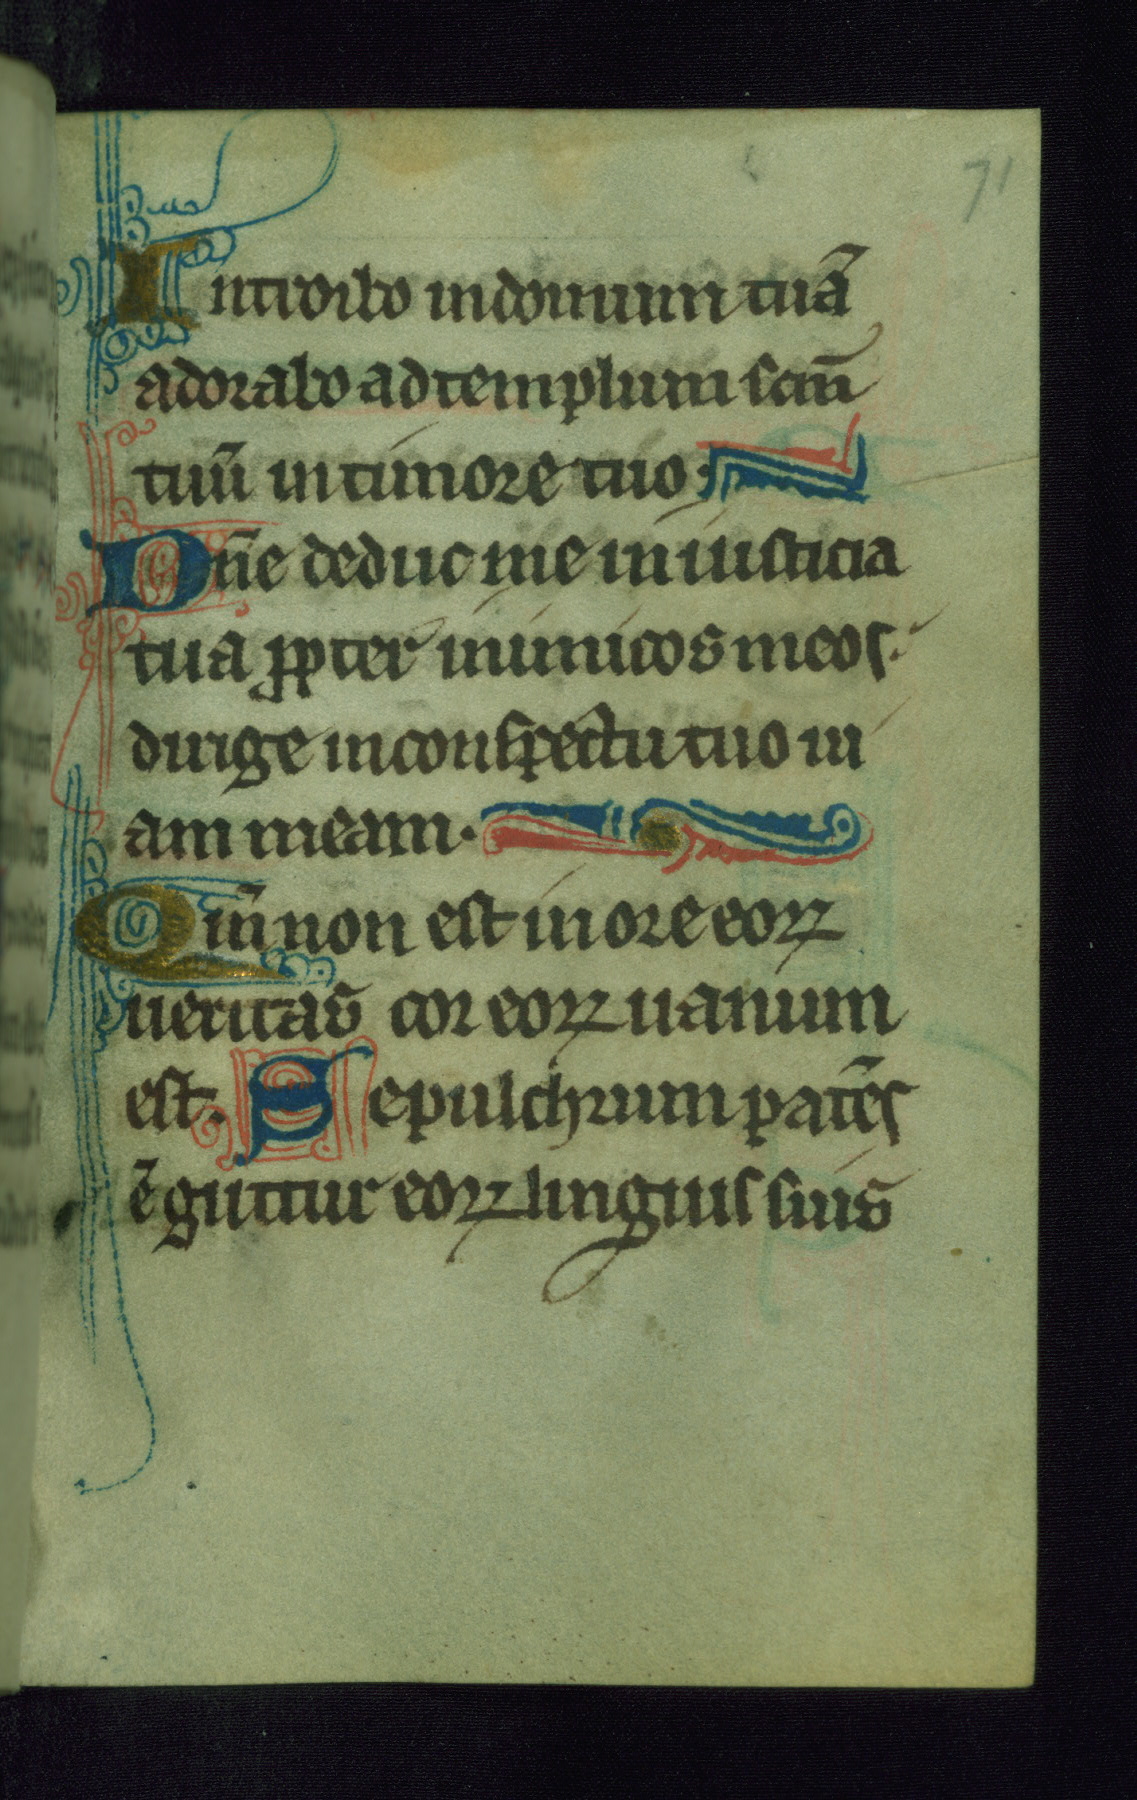 71
Introibo in domum tuā
adorabo ad templum scm̄
tuū in timore tuo
Dn̄e deduc me in iusticia
tua ꝓpter inimicos meos
dirige in conspectu tuo ui
am meam.
Qm̄ non est in ore eoꝝ
ueritas cor eoꝝ uanum
est. Sepulchrum patēs
ē guttur eoꝝ linguis suis